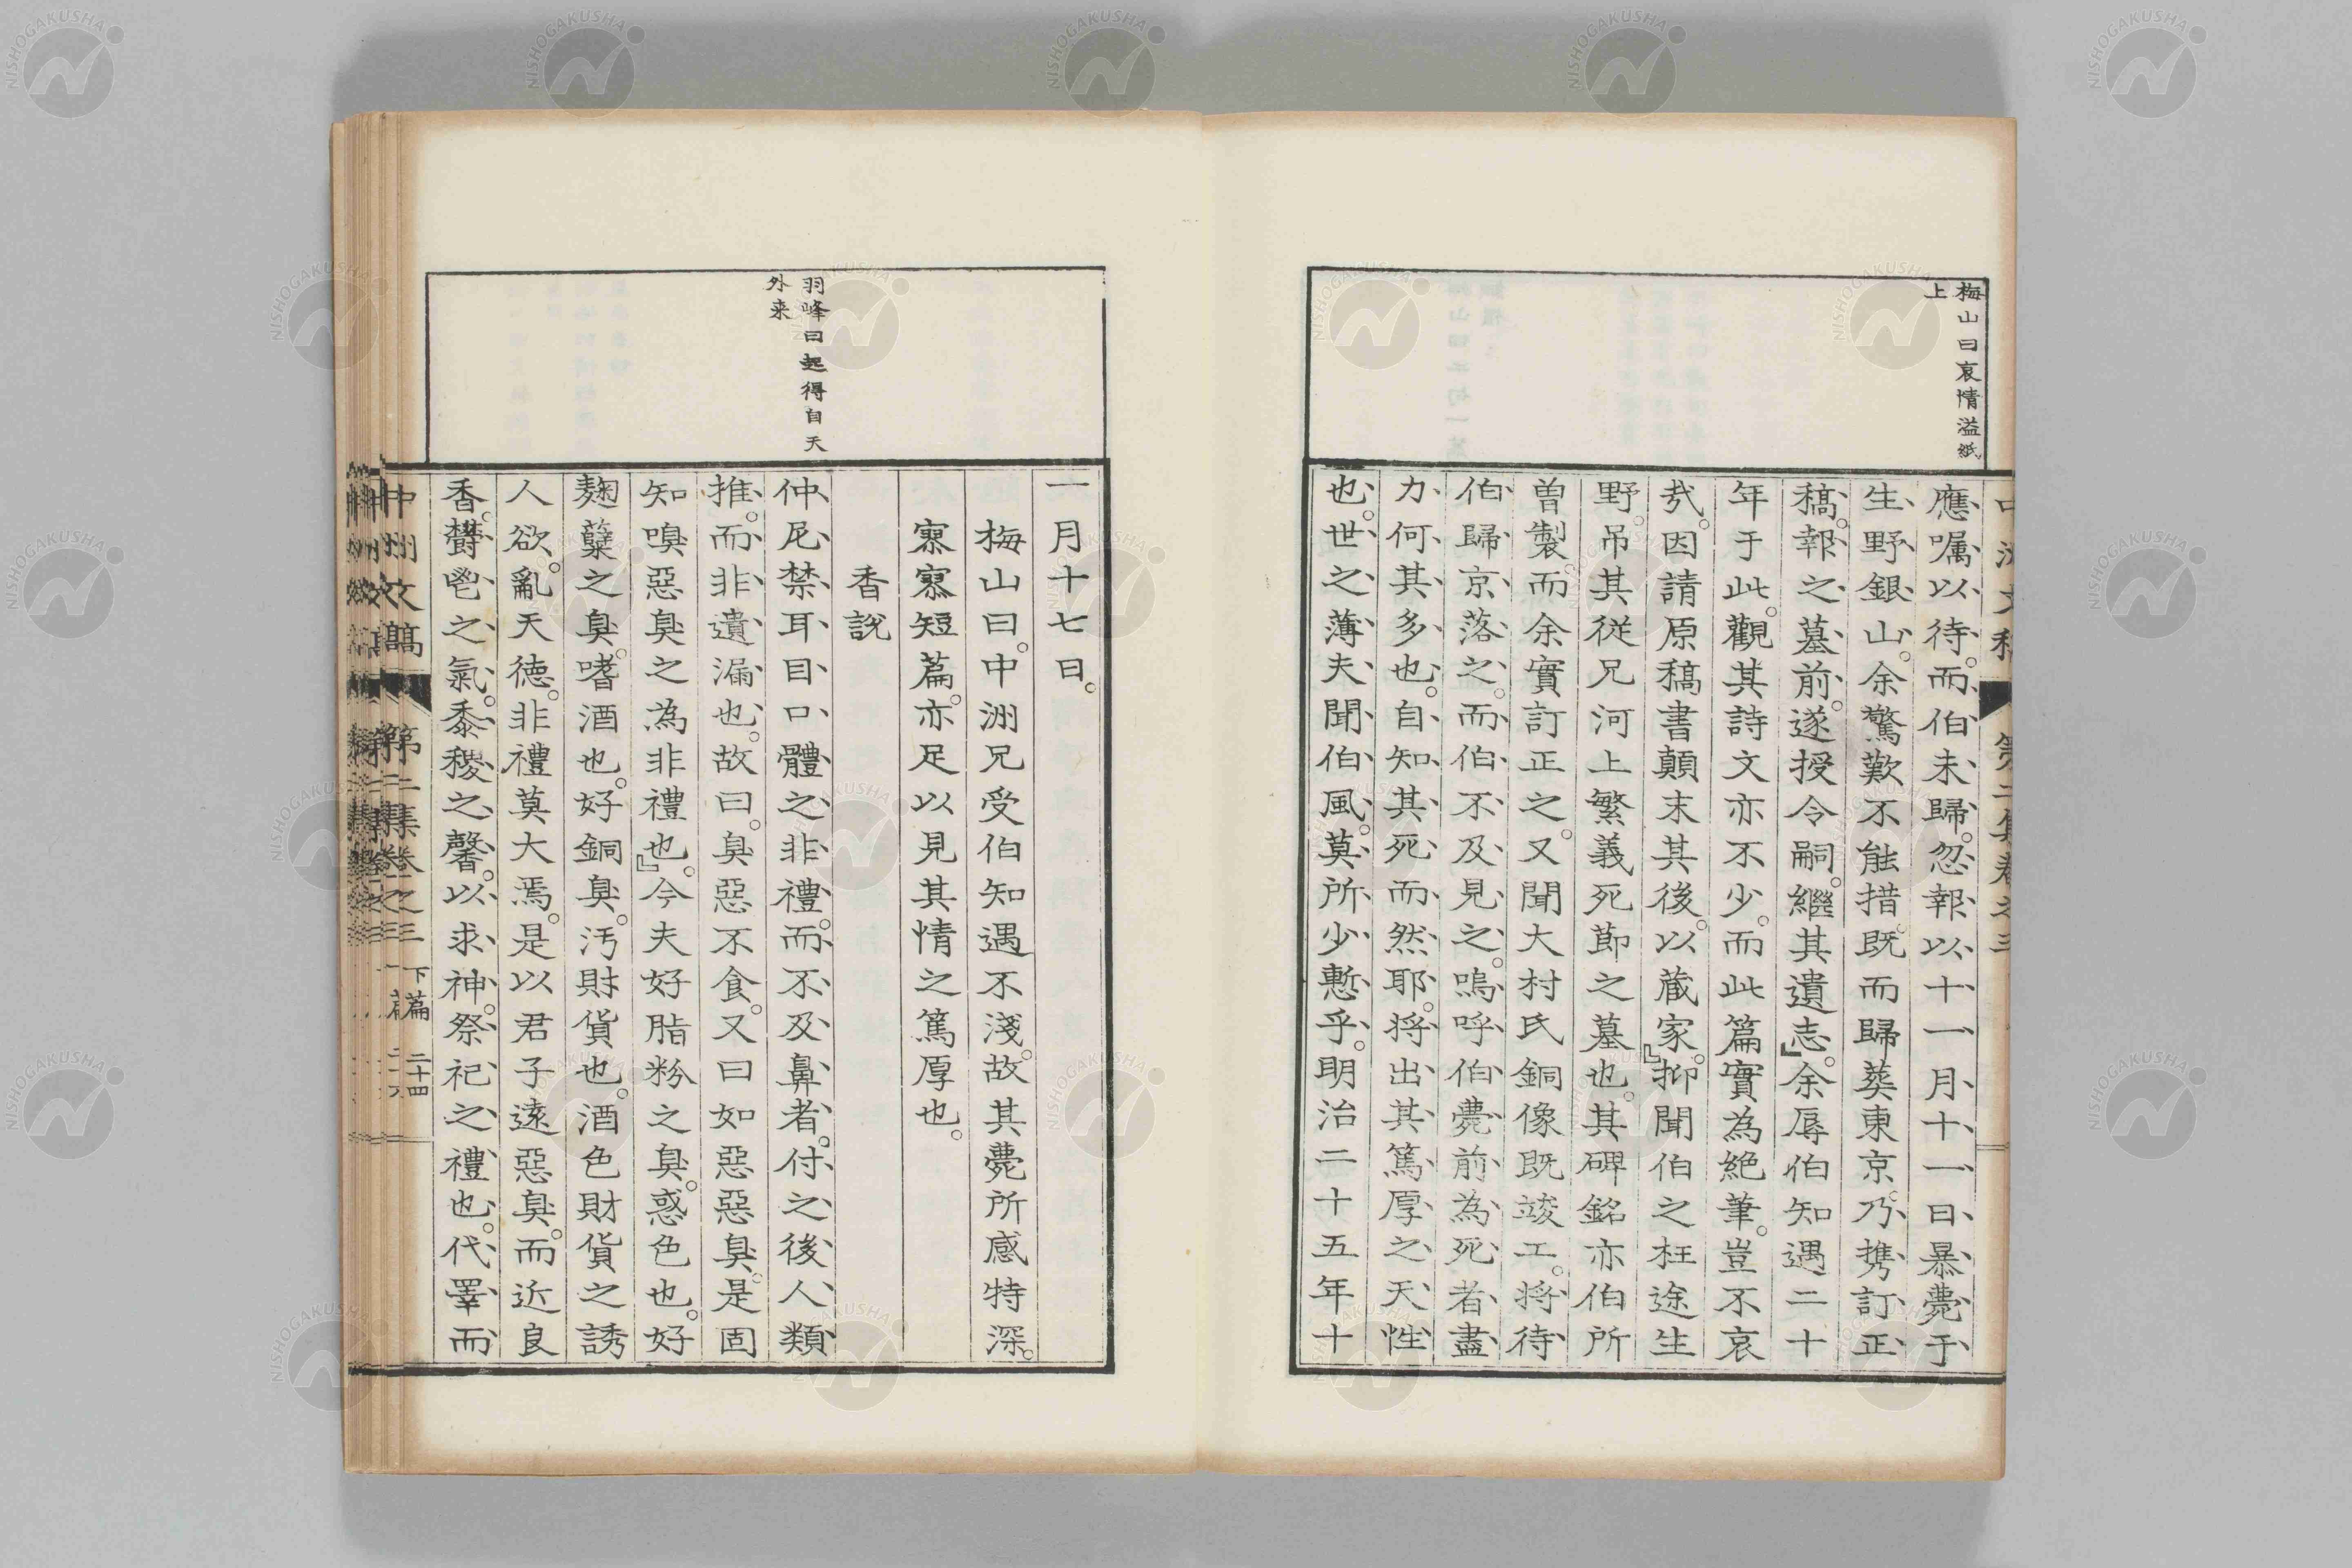 梅山曰哀情溢紙
上
應嘱以待。而伯未歸。忽報以十一月十一日暴薨于
生野銀山。余驚歎不能措。既而歸葬東京。乃携訂正
稿。報之墓前。遂授令嗣。繼其遺志。』余辱伯知遇二十
年于此。觀其詩文亦不少。而此篇實為絶筆。豈不哀
㢤。因請原稿書顛末其後。以蔵家。』抑聞伯之枉途生
野。吊其従兄河上繁義死節之墓也。其碑銘亦伯所
曽製。而余實訂正之。又聞大村氏銅像既竣工。将待
伯歸京落之。而伯不及見之。嗚呼伯薨前為死者盡
力何其多也。自知其死而然耶。将出其篤厚之天性
也。世之薄夫聞伯風。莫所少慙乎。明治二十五年十
一月十七日。
梅山曰。中洲兄受伯知遇不淺。故其薨所感特深。
寥寥短篇。亦足以見其情之篤厚也。
香說
羽峰曰起得自天
外来
仲尼禁耳目口體之非禮。而不及鼻者。付之後人類
推。而非遺漏也。故曰。臭惡不食。又曰如惡惡臭。是固
知嗅惡臭之為非禮也。』今夫好脂粉之臭。惑色也。好
麹蘖之臭。嗜酒也。好銅臭。汚財貨也。酒色財貨之誘
人欲。亂天德。非禮莫大焉。是以君子遠惡臭。而近良
香。欎鬯之氣。黍稷之馨。以求神。祭祀之禮也。代睪而
中洲文稿 第二集卷之三 下篇 二十四